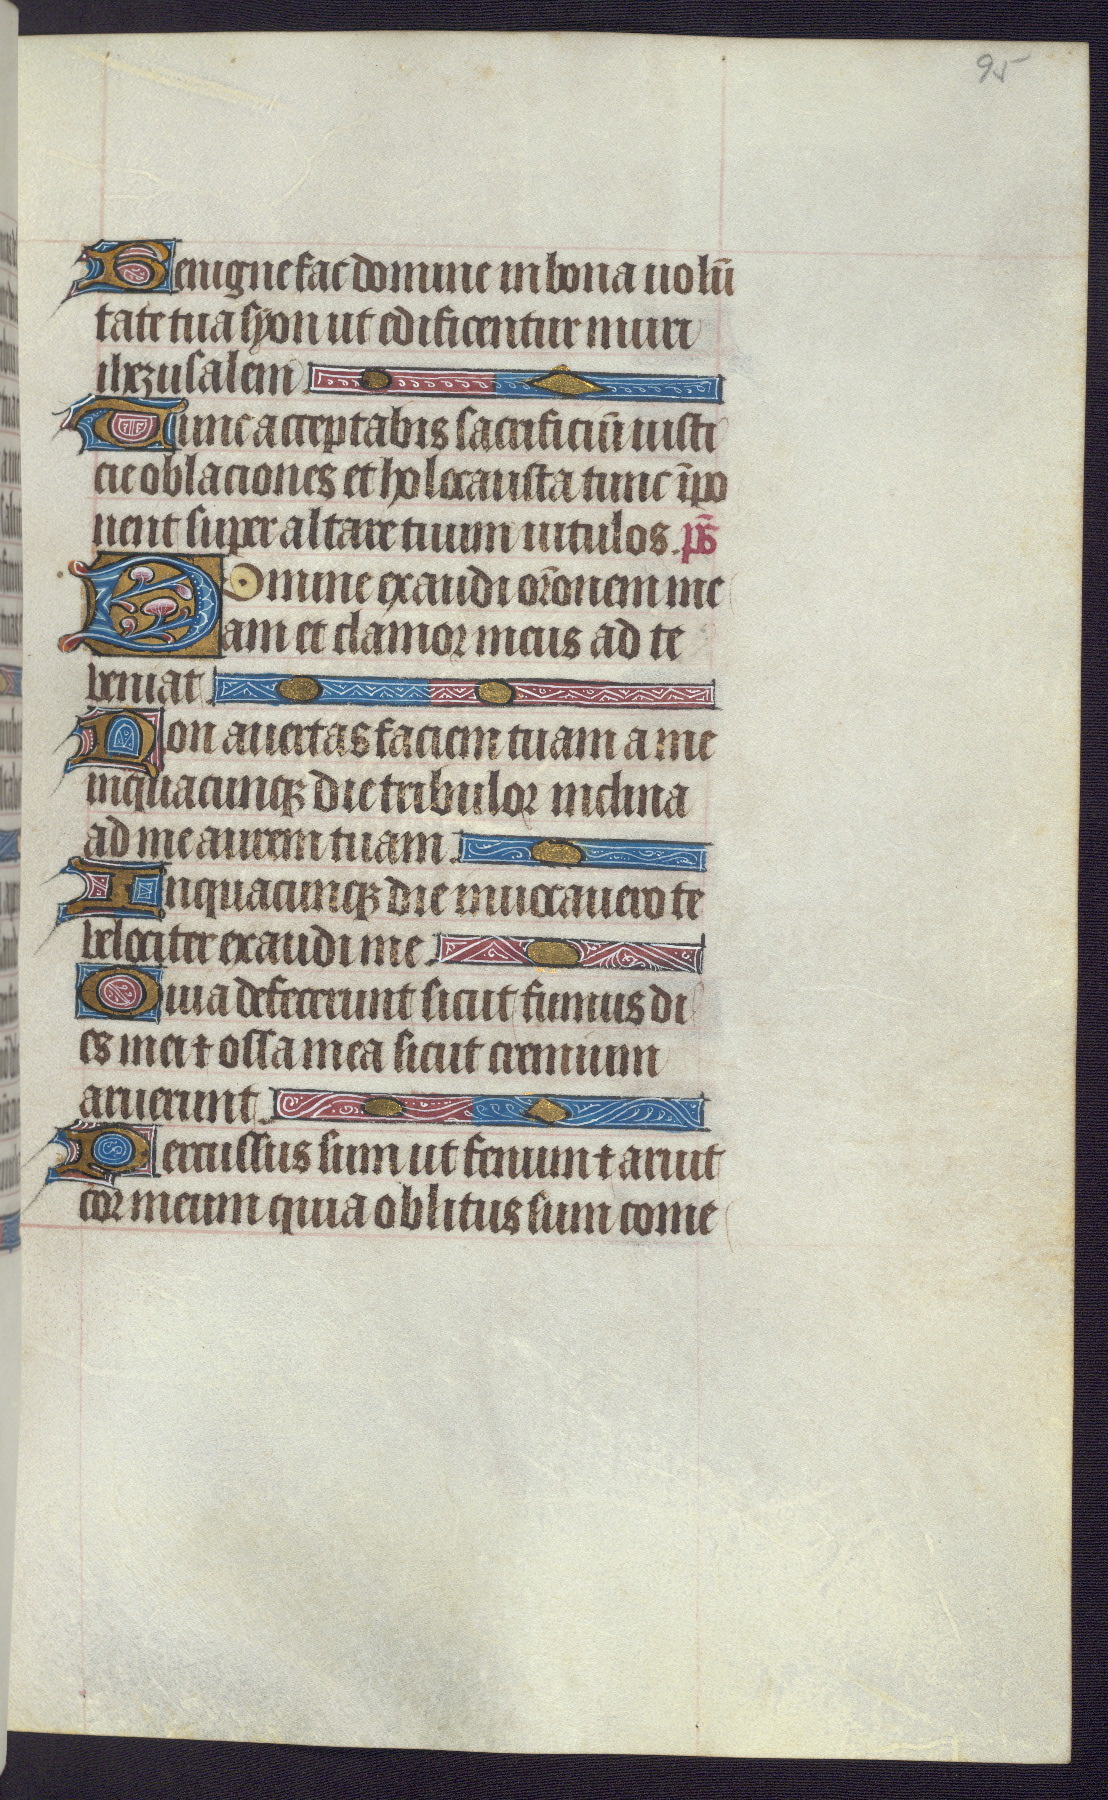 95
Benigne fac domine in bona uolū
tate tua syon ut edificentur muri
iherusalem
Tunc acceptabis sacrificiū iusti
cie oblaciones et holocausta tunc īpo
nent super altare tuum uitulos. ps̄
Domine exaudi or̄onem me
am et clamor meus ad te
veniat
Non auertas faciem tuam a me
inquacunqꝫ die tribulor inclina
ad me aurem tuam.
Inquacunqꝫ die inuocauero te
velociter exaudi me.
Quia defecerunt sicut fumus di
es mei ⁊ ossa mea sicut cremium
aruerunt.
Percussus sum ut fenum ⁊ aruit
cor meum quia oblitus sum come